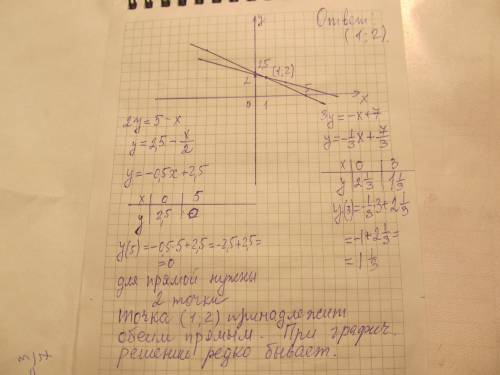 Ответ:
(1; 2).
y
2,5
(1; 2)
2
5
0
1
x
2y = 5 - x
y = 2,5 - x/2
y = -0,5x + 2,5
x | 0 | 5
y | 2,5 | 0
y(5) = -0,5·5 + 2,5 = -2,5 + 2,5 =
= 0
для прямой нужны
2 точки
3y = -x + 7
y = -1/3x + 7/3
x | 0 | 3
y | 2 1/3 | 1 1/3
y(3) = -1/3·3 + 2 1/3
= -1 + 2 1/3 =
= 1 1/3
точка (1; 2) принадлежит
обеим прямым. При графич.
решении редко бывает.